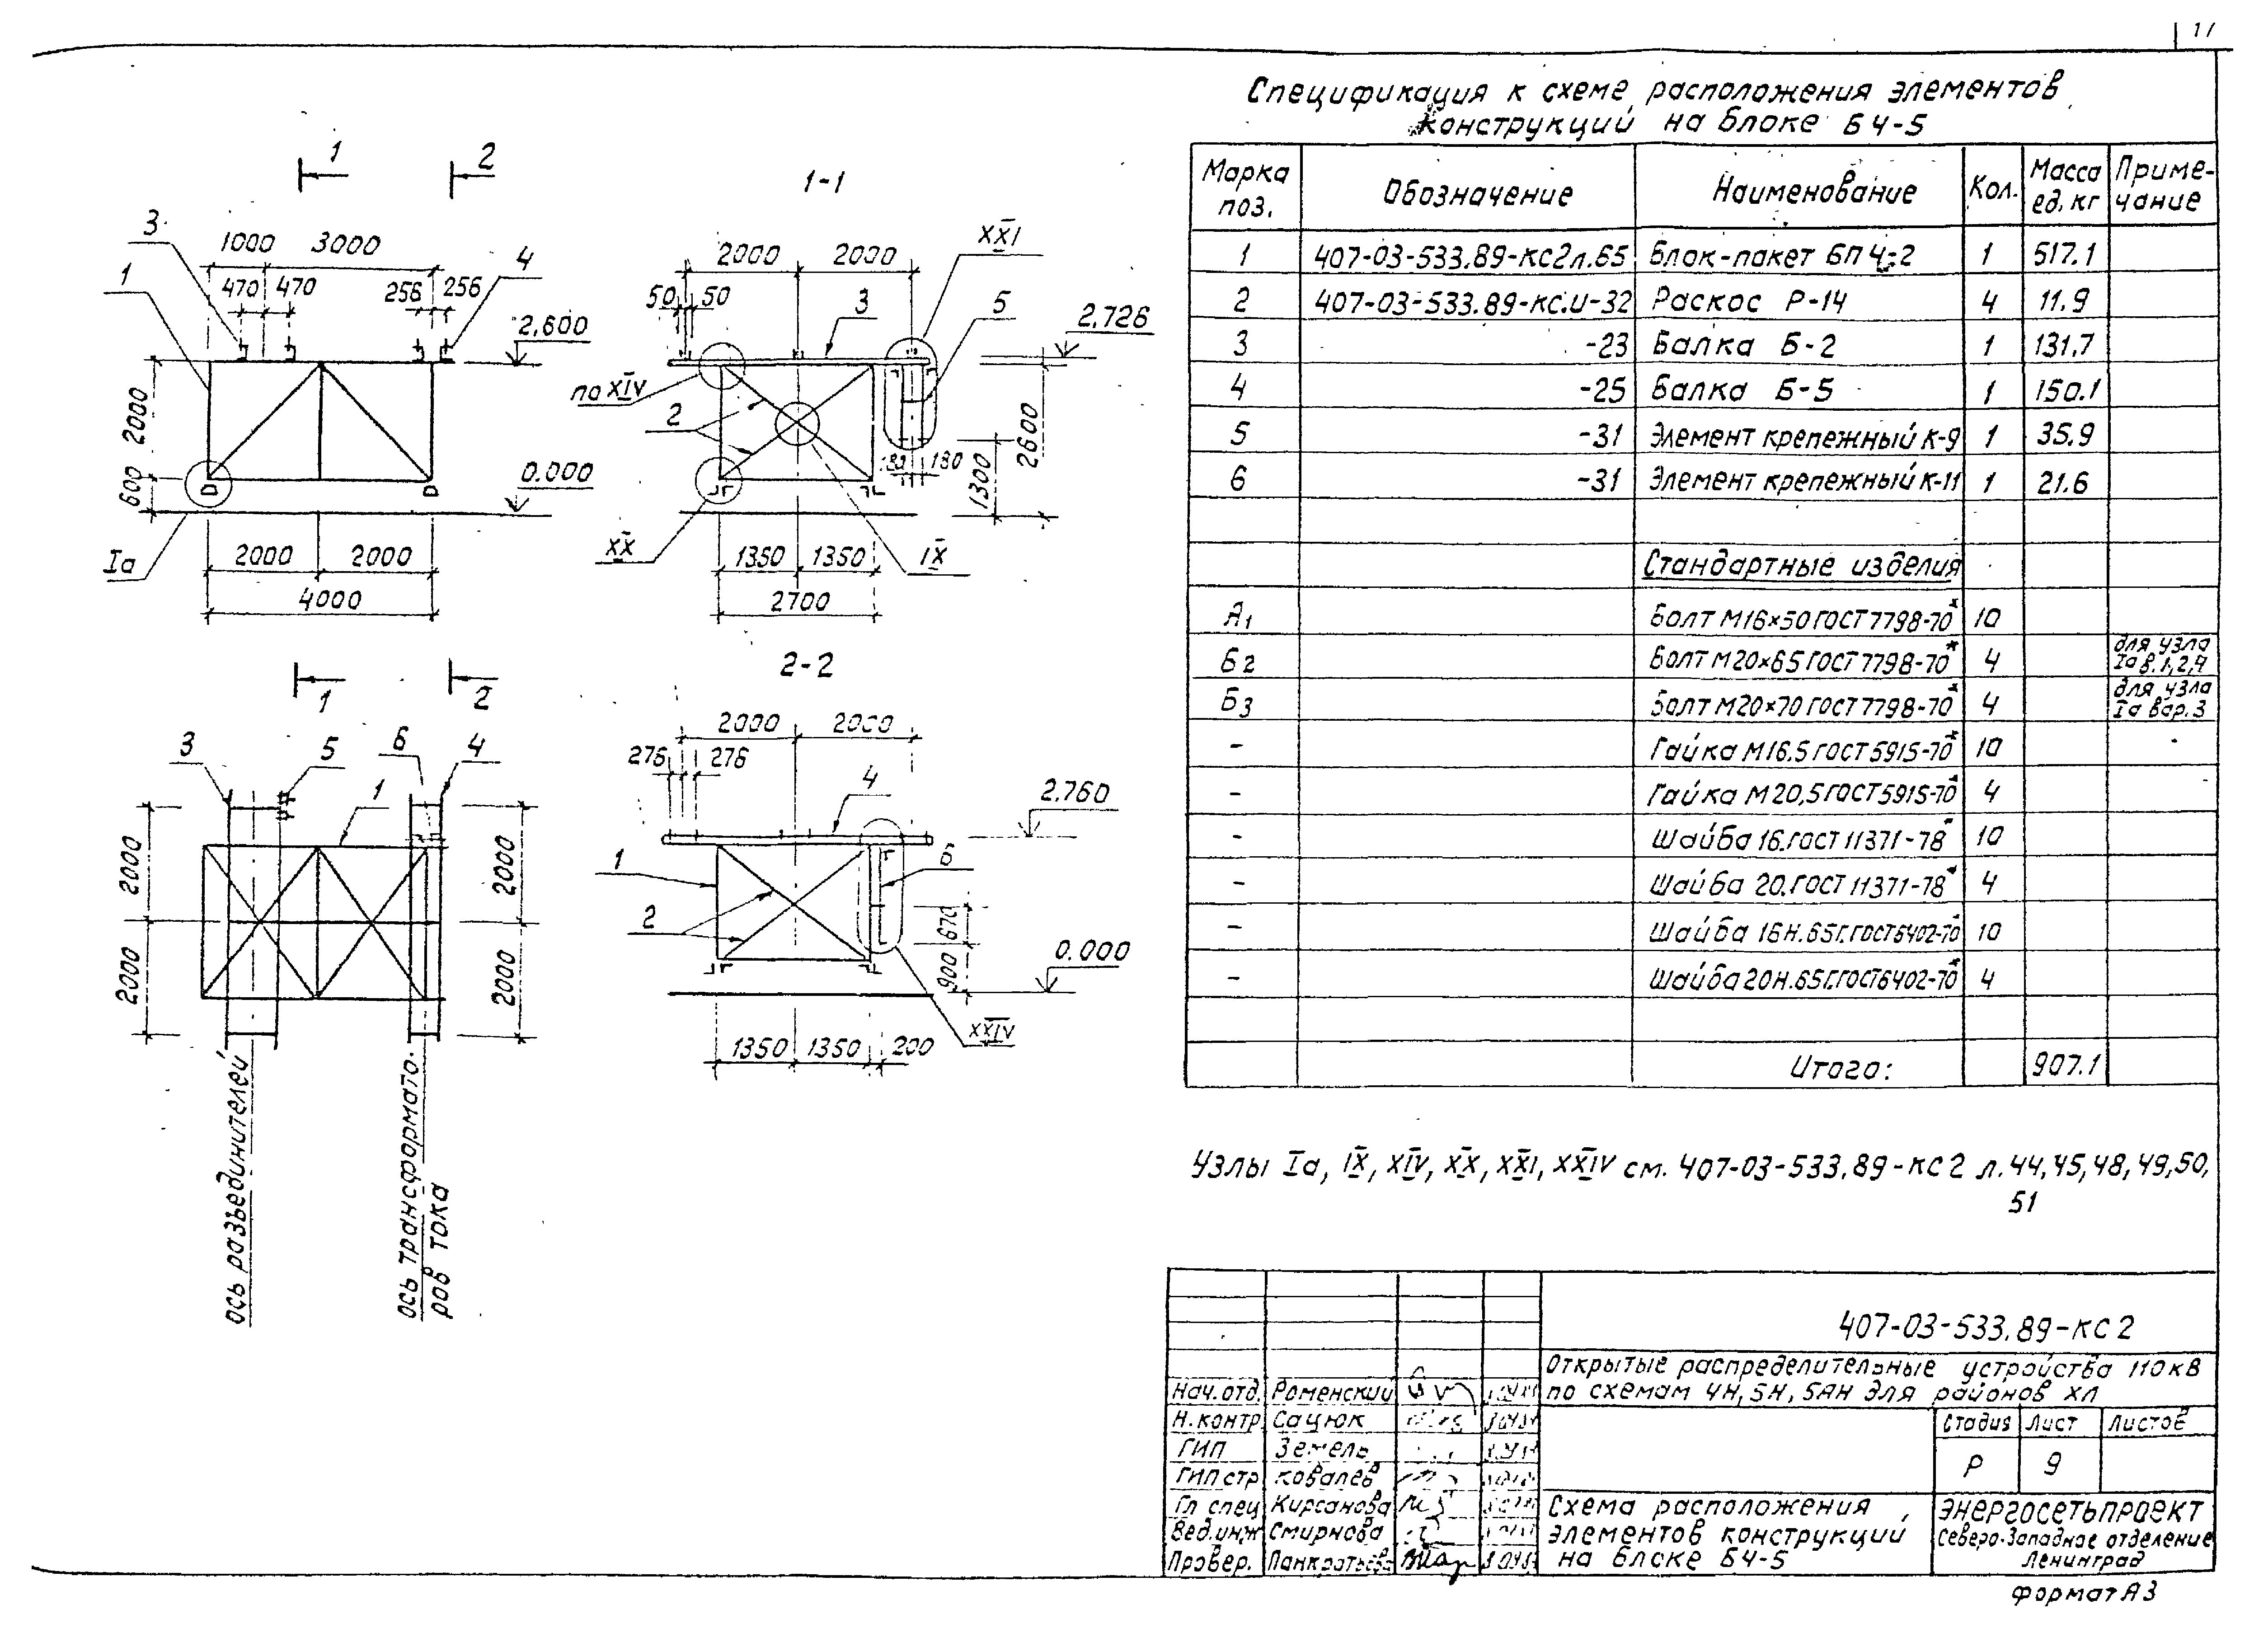 17
Спецификация к схеме расположения элементов
конструкций на блоке Б4-5
Марка поз. Обозначение Наименование Кол. Масса ед. кг Приме-чание
1 407-03-533.89-КС2л.65 Блок-пакет БП 4-2 1 517.1
2 407-03-533.89-КС.И-32 Раскос Р-14 4 11.9
3 -23 Балка Б-2 1 131.7
4 -25 Балка Б-5 1 150.1
5 -31 Элемент крепежный К-9 1 35.9
6 -31 Элемент крепежный К-11 1 21.6
Стандартные изделия
А1 Болт М16×50 ГОСТ 7798-70* 10
Б2 Болт М20×65 ГОСТ 7798-70* 4 для узла Iа в.1,2,4
Б3 Болт М20×70 ГОСТ 7798-70* 4 для узла Iа вар.3
- Гайка М16.5 ГОСТ 5915-70* 10
- Гайка М20,5 ГОСТ 5915-70* 4
- Шайба 16.ГОСТ 11371-78* 10
- Шайба 20.ГОСТ 11371-78* 4
- Шайба 16Н.65Г.ГОСТ6402-70* 10
- Шайба 20Н.65Г.ГОСТ6402-70* 4
Итого: 907.1
Узлы Iа, IX, XIV, XX, XXI, XXIV см. 407-03-533.89-КС2 л.44,45,48,49,50,
51
1 2
3
1000 3000
4
1
470 470 256 256
2.600
2000
600
0.000
Iа
2000 2000
4000
1-1
XXI
2000 2000
50 50 3 5
2.726
по XIV
2
180 180
1300
2600
XX
1350 1350
IX
2700
1 2
3 5 6 4
1
2000 2000
2000 2000
ось разъединителей
ось трансформато.
ров тока
2-2
2000 2000
276 276 4
2.760
1 6
2
670
900
0.000
XXIV
1350 1350 200
407-03-533.89-КС2
Открытые распределительные устройства 110кВ
по схемам 4Н, 5Н, 5АН для районов ХЛ
Нач.отд. Роменский
Н.контр. Сацюк
ГИП Земель
ГИП стр Ковалев
Гл спец Кирсанова
Вед.инж Смирнова
Провер. Панкратьева
Стадия Лист Листов
Р 9
Схема расположения
элементов конструкции
на блоке Б4-5
ЭНЕРГОСЕТЬПРОЕКТ
Северо-Западное отделение
Ленинград
формат А3